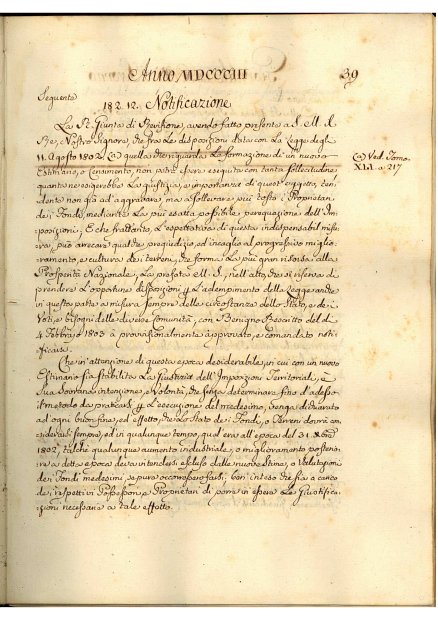 Anno MDCCCIII 39
Seguente
182. 12. Notificazione
La Rl. Giunta di Revisione, avendo fatto presente a S. M. il
Re, Nostro Signore, che fra le disposizioni data con la Legge degli
11. Agosto 1802. (a) quella che riguarda la formazione di un nuovo
(a) Ved. Tomo
XLI. a 217
Estimario, o Censimento, non potrà essere eseguita con tanta sollecitudine
quanta ne esigerebbe la giustizia, e importanza di quest' oggetto, ten-
dente non già ad aggravare, ma a sollevare più tosto i Proprietari
de i Fondi, mediante la più esatta possibile perequazione dell' Im-
posizioni, E che frattanto, l'espettativa di questa indispensabil misu-
ra, può arrecare qualche pregiudizio, ed incaglio al progressivo miglio-
ramento, e cultura dei terreni, che forma la più gran risorsa alla
Prosperità Nazionale, La prefata M. S., nell' atto, che si riserva di
prendere l'opportune disposizioni per l'adempimento della Legge, anche
in questa parte a misura sempre delle circostanze dello Stato, e de i
Voti, e bisogni delle diverse Comunità, con Benigno Rescritto del dì
4 Febbraio 1803 à provvisionalmente approvato, e comandato noti-
ficarsi
Che in attenzione di questa epoca desiderabile, in cui con un nuovo
Estimario sia stabilita la giustizia dell' Imposizioni Territoriali, è
Sua Sovrana intenzione, e Volontà, che senza determinare fino d'adesso
il metodo da praticarsi per l'esecuzione del medesimo, venga dichiarato
ad ogni buon fine, ed effetto, che lo Stato de i Fondi, o Terreni dovrà con-
siderarsi sempre, ed in qualunque tempo, qual era all' epoca del 31. Xbre
1802, talchè qualunque aumento industriale, o miglioramento posterio-
re a detta epoca dovrà intendersi escluso dalle nuove Stime, o Valutazioni
de i Fondi medesimi, se pure occorresse farsi, ben inteso che sia a carico
de i rispettivi Possessori, e Proprietari di porre in essere le giustifica-
zioni necessarie a tale effetto.